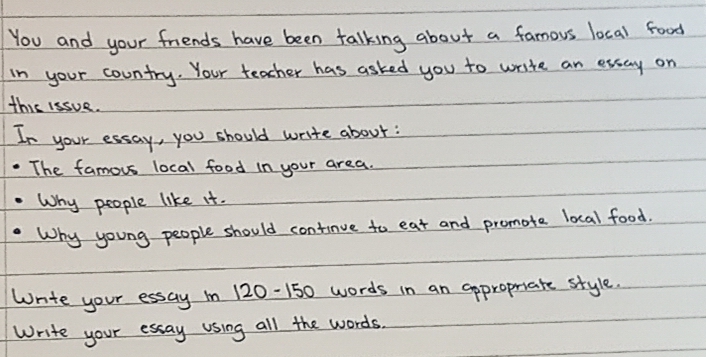 You and your friends have been talking about a famous local food
in your country. Your teacher has asked you to write an essay on
this issue.
In your essay, you should write about:
• The famous local food in your area.
• Why people like it.
• Why young people should continue to eat and promote local food.
Write your essay in 120-150 words in an appropriate style.
Write your essay using all the words.